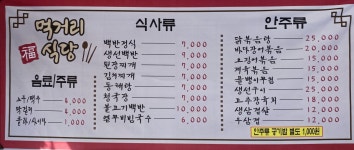 먹거리
식당
福
음료/주류
소주/맥주 4,000
막걸리 4,000
콜라/사이다
식사류
백반정식 7,000
생선백반 9,000
된장찌개 7,000
김치찌개 7,000
동태탕 7,000
청국장 7,000
불고기백반 10,000
열무비빔국수 6,000
안주류
닭볶음탕 25,000
바다장어볶음 20,000
오징어볶음 20,000
제육볶음 15,000
골뱅이무침 15,000
생선구이 15,000
도토리묵
생삼겹살 12,000
우삼겹 12,000
안주류 공기밥 별도 1,000원